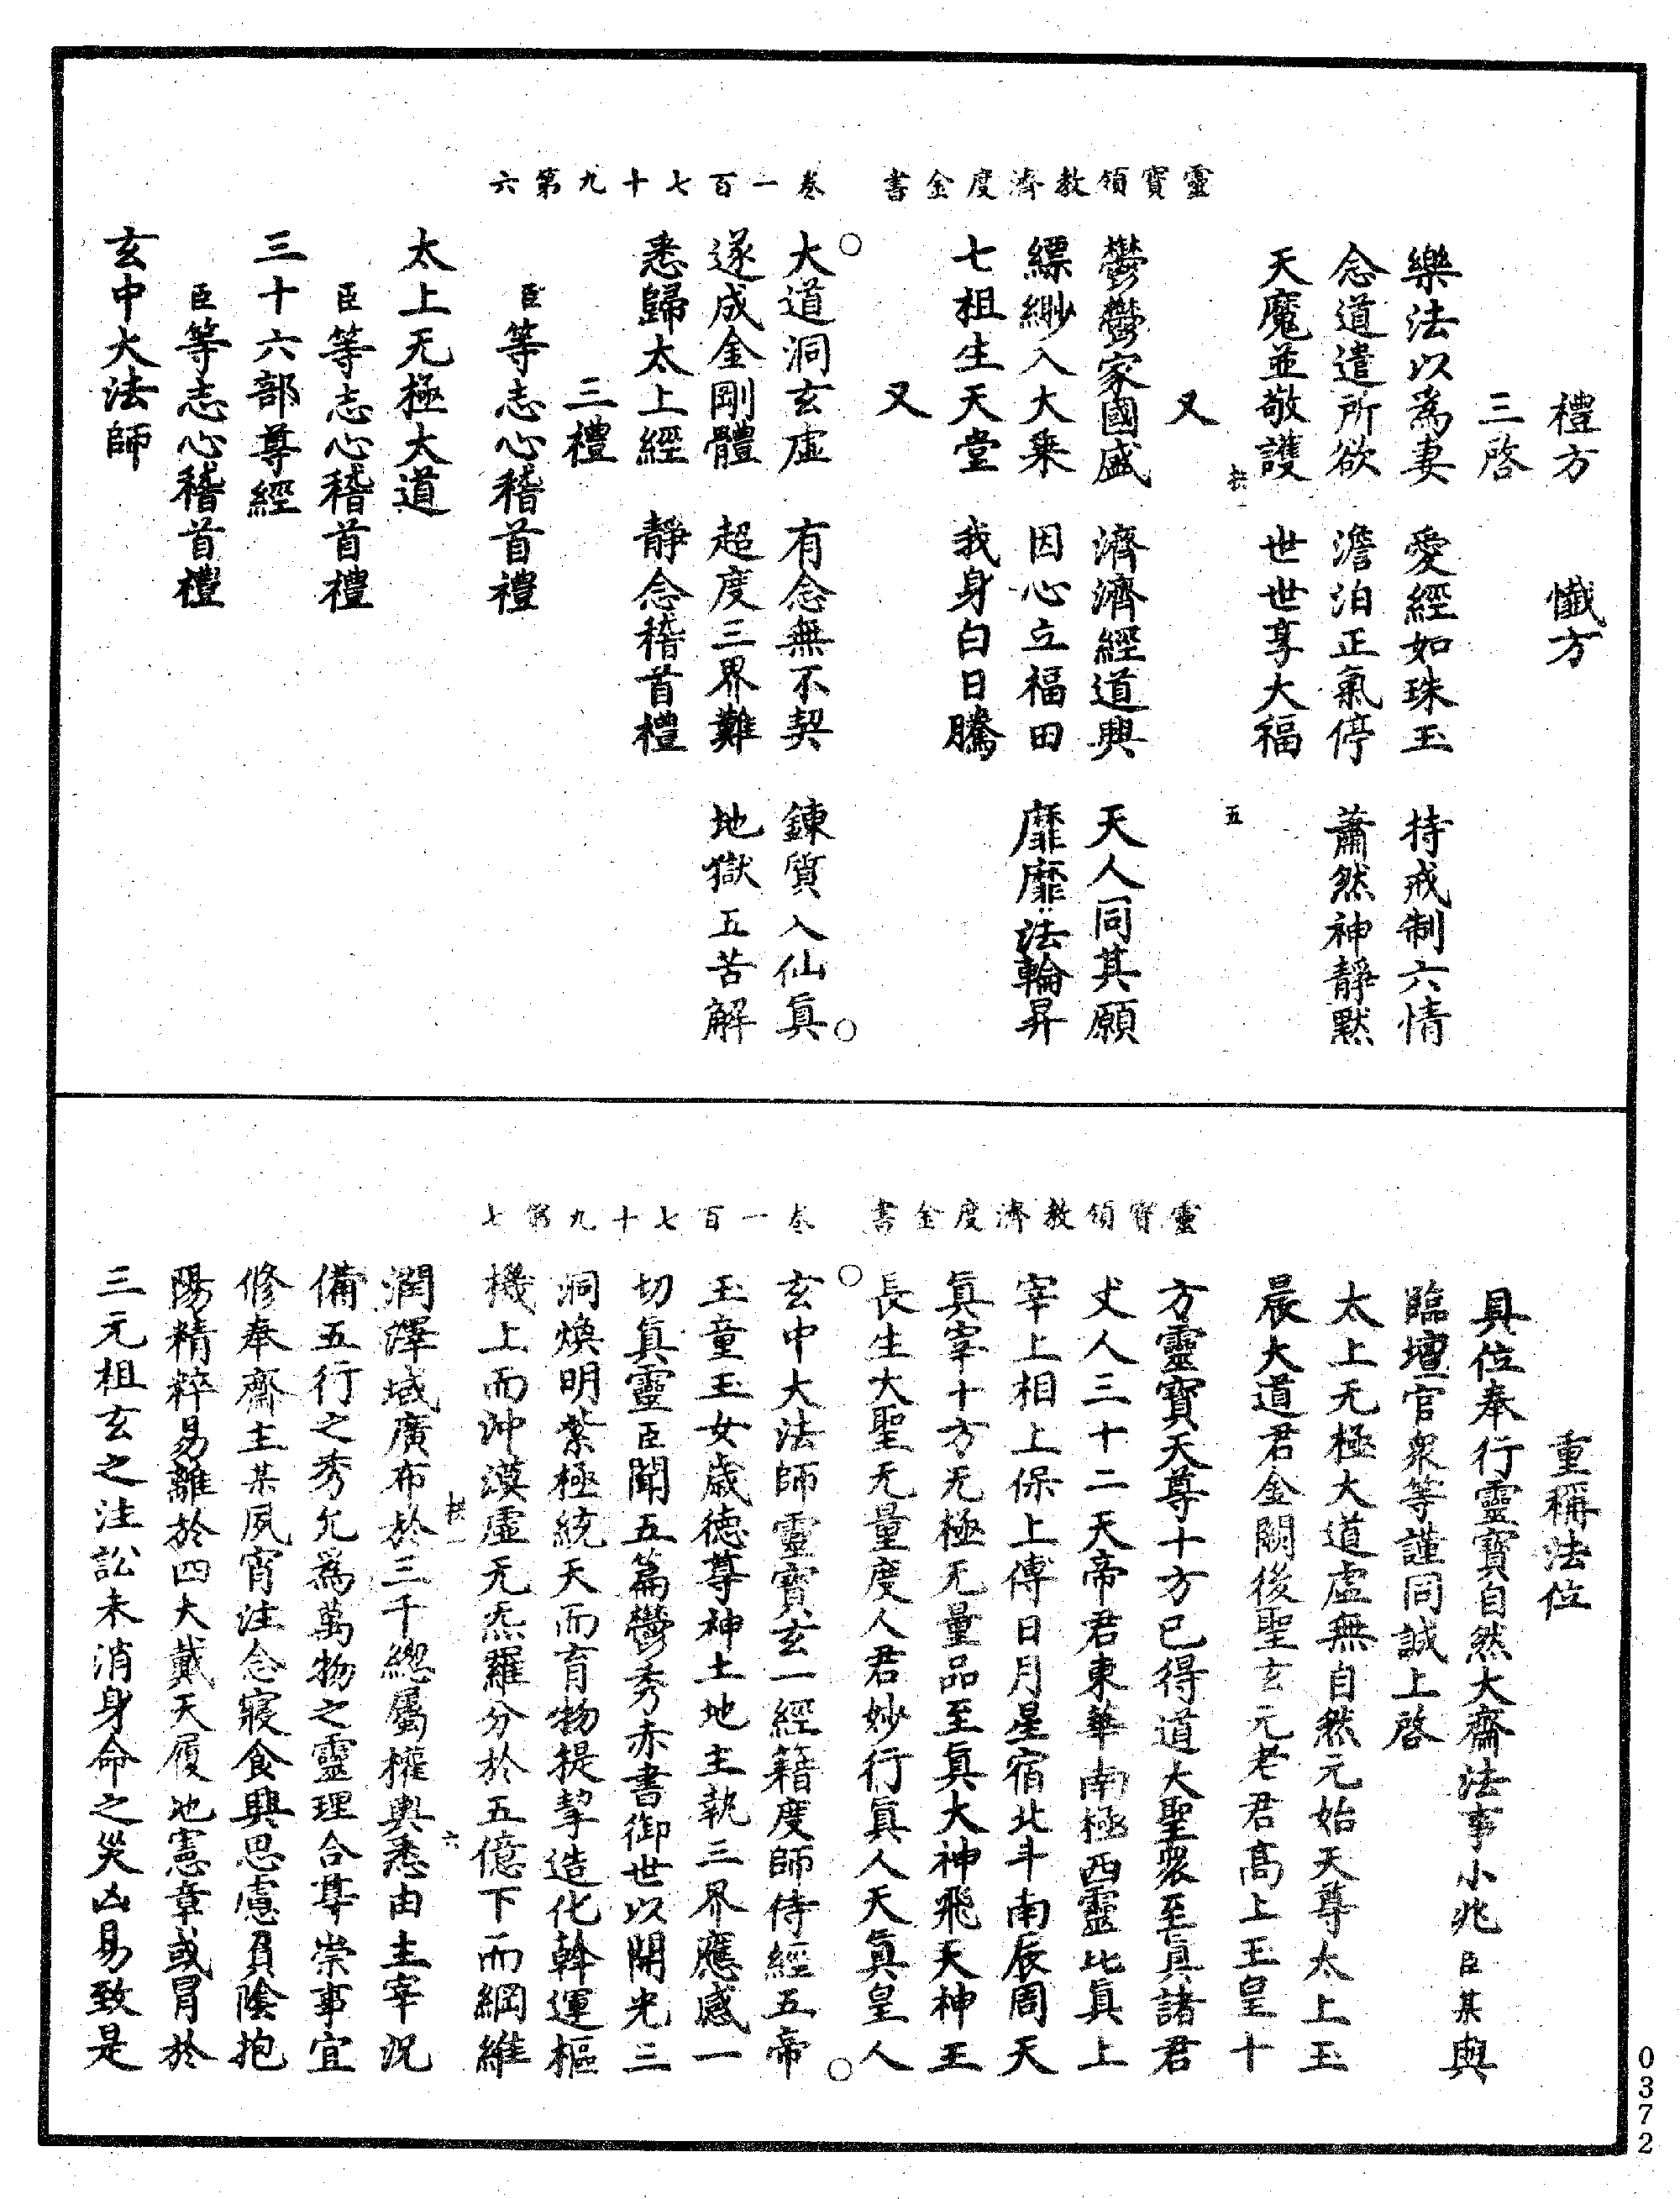 靈寶領教濟度金書　卷一百七十九第六
禮方　懺方
三啓
樂法以為妻　愛經如珠玉　持戒制六情
念道遣所欲　澹泊正氣停　蕭然神靜默
天魔並敬護　世世享大福
五
又
鬱鬱家國盛　濟濟經道興　天人同其願
縹緲入大乗　因心立福田　靡靡法輪昇
七祖生天堂　我身白日騰
又
大道洞玄虛　有念無不契　鍊質入仙眞
遂成金剛體　超度三界難　地獄五苦解
悉歸太上經　靜念稽首禮
三禮
臣等志心稽首禮
太上无極大道
臣等志心稽首禮
三十六部尊經
臣等志心稽首禮
玄中大法師
靈寶領教濟度金書　卷一百七十九第七
重稱法位
具位奉行靈寶自然大齋法事小兆臣某與
臨壇官衆等謹同誠上啓
太上无極大道虛無自然元始天尊太上玉
晨大道君金闕後聖玄元老君高上玉皇十
方靈寶天尊十方已得道大聖衆至眞諸君
丈人三十二天帝君東華南極西靈北真上
宰上相上保上傅日月星宿北斗南辰周天
眞宰十方无極无量品至眞大神飛天神王
長生大聖无量度人君妙行眞人天眞皇人
玄中大法師靈寶玄一經籍度師侍經五帝
玉童玉女歲德尊神土地主執三界應感一
切眞靈臣聞五篇鬱秀赤書御世以開光三
洞煥明紫極統天而育物提挈造化斡運樞
機上而沖漠虛无炁羅分於五億下而綱維
六
潤澤域廣布於三千總屬權輿悉由主宰況
備五行之秀允爲萬物之靈理合尊崇事宜
修奉齋主某夙宵注念寢食興思慮負陰抱
陽精粹易離於四大戴天履地憲章或冐於
三元祖玄之注訟未消身命之災凶易致是
0372